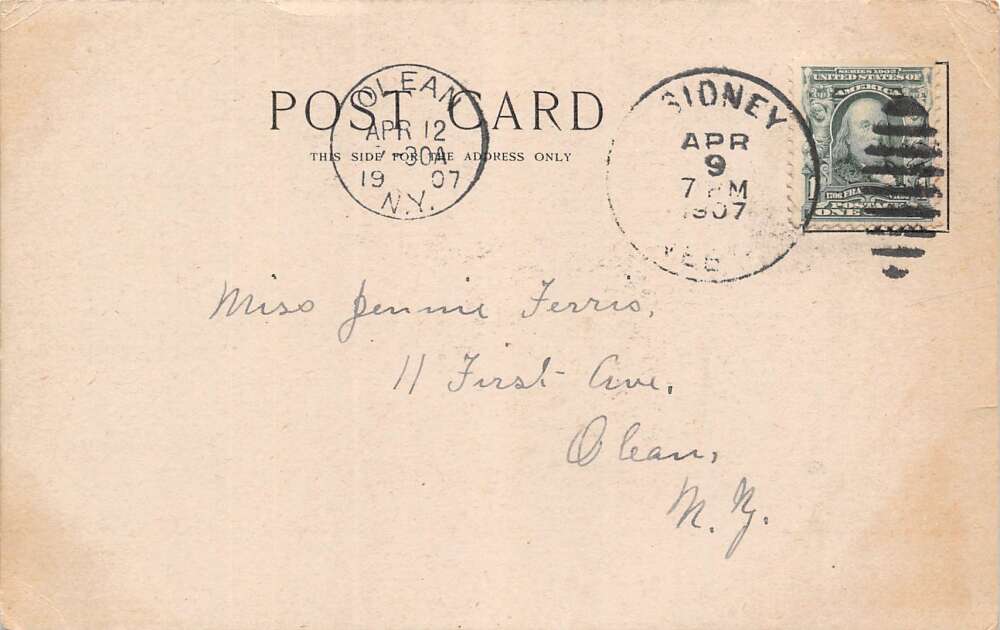 POST CARD
THIS SIDE FOR THE ADDRESS ONLY
OLEAN
APR 12
30A
19 07
N.Y.
SIDNEY
APR
9
7 PM
1907
NEB
SERIES 1902
UNITED STATES OF
AMERICA
POSTAGE
ONE
Miss Jennie Ferris,
11 First Ave,
Olean,
N. Y.